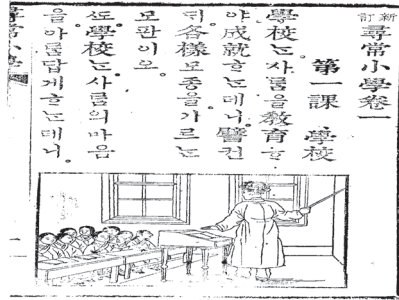 新訂尋常小學卷一
第一課 學校
學校ᄂᆞᆫ사ᄅᆞᆷ을敎育ᄒᆞ
야成就ᄒᆞᄂᆞᆫ데니。譬컨
ᄃᆡ各樣모종을기르ᄂᆞᆫ
모판이오。
ᄯᅩ學校ᄂᆞᆫ사ᄅᆞᆷ의마음
을아ᄅᆞᆷ답게ᄒᆞᄂᆞᆫ데니。
尋常小學
一